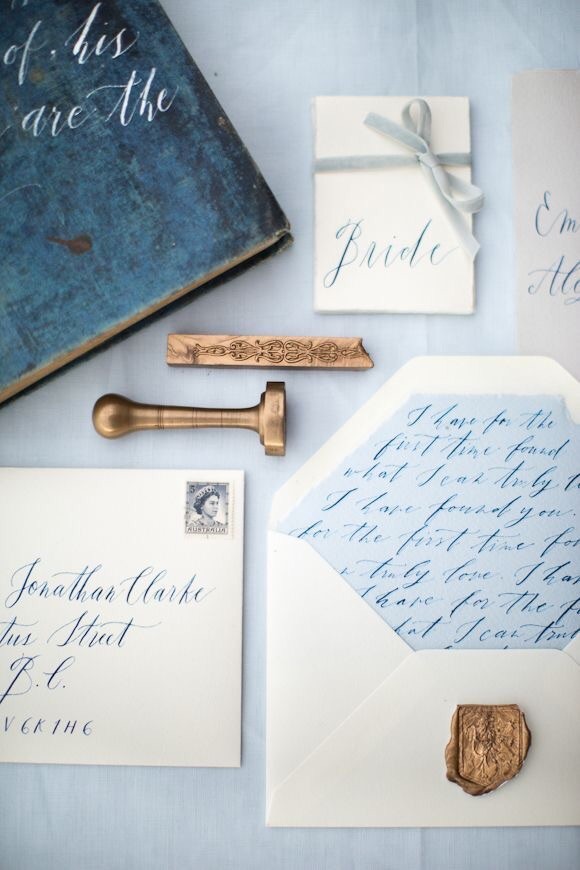 of, his
are the
Bride
Em
I have for the
first time found
what I can truly
I have found you.
for the first time
truly love. I ha
I have for the
what I can tru
5
AUSTRALIA
Jonathan Clarke
tus Street
B.C.
V6K1H6